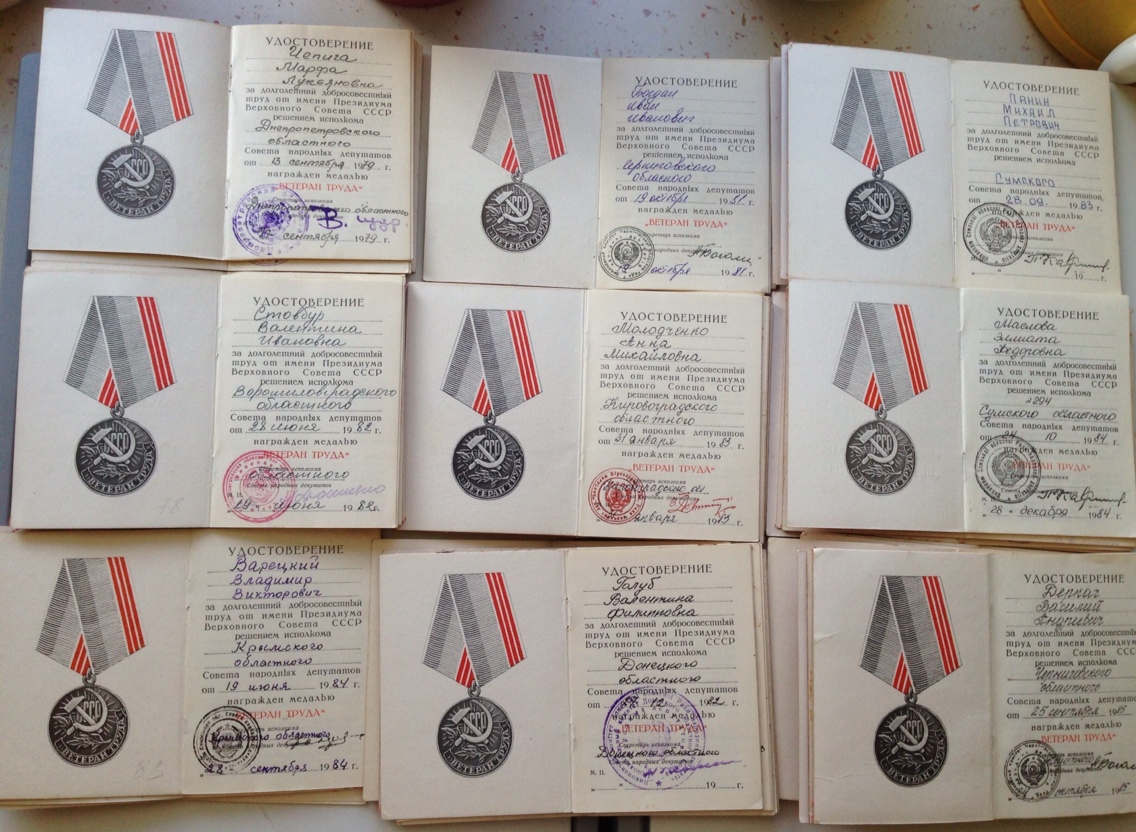 УДОСТОВЕРЕНИЕ
Марфа
Лукьяновна
за долголетний добросовестный
труд от имени Президиума
Верховного Совета СССР
решением исполкома
Днепропетровского
областного
Совета народных депутатов
от 13 сентября 1979 г.
награжден медалью
"ВЕТЕРАН ТРУДА"
областного
сентября 1979 г.
СССР
ВЕТЕРАН ТРУДА
УДОСТОВЕРЕНИЕ
Богдан
Иван
Иванович
за долголетний добросовестный
труд от имени Президиума
Верховного Совета СССР
решением исполкома
областного
Совета народных депутатов
от 19 октября 1981 г.
награжден медалью
"ВЕТЕРАН ТРУДА"
Секретарь исполкома
народных депутатов
октября 1981 г.
СССР
ВЕТЕРАН ТРУДА
УДОСТОВЕРЕНИЕ
ПАНИН
МИХАИЛ
ПЕТРОВИЧ
за долголетний добросовестный
труд от имени Президиума
Верховного Совета СССР
решением исполкома
Сумского
Совета народных депутатов
от 28.09. 1983 г.
награжден медалью
"ВЕТЕРАН ТРУДА"
Секретарь исполкома
19 г.
СССР
ВЕТЕРАН ТРУДА
УДОСТОВЕРЕНИЕ
Стовбур
Валентина
Ивановна
за долголетний добросовестный
труд от имени Президиума
Верховного Совета СССР
решением исполкома
Ворошиловградского
областного
Совета народных депутатов
от 28 июня 1982 г.
награжден медалью
"ВЕТЕРАН ТРУДА"
Секретарь исполкома
областного
Совета народных депутатов
М. П.
июня 1982 г.
СССР
ВЕТЕРАН ТРУДА
78
УДОСТОВЕРЕНИЕ
Молодченко
Анна
Михайловна
за долголетний добросовестный
труд от имени Президиума
Верховного Совета СССР
решением исполкома
Кировоградского
областного
Совета народных депутатов
от 31 января 1983 г.
награжден медалью
"ВЕТЕРАН ТРУДА"
Кировоградского
января 1983 г.
СССР
ВЕТЕРАН ТРУДА
УДОСТОВЕРЕНИЕ
Маслова
Федоровна
за долголетний добросовестный
труд от имени Президиума
Верховного Совета СССР
решением исполкома
№294
Сумского областного
Совета народных депутатов
от 10 1984 г.
награжден медалью
"ВЕТЕРАН ТРУДА"
"28" декабря 1984 г.
СССР
ВЕТЕРАН ТРУДА
УДОСТОВЕРЕНИЕ
Варецкий
Владимир
Викторович
за долголетний добросовестный
труд от имени Президиума
Верховного Совета СССР
решением исполкома
Крымского
областного
Совета народных депутатов
от 19 июня 1984 г.
награжден медалью
"ВЕТЕРАН ТРУДА"
Крымского областного
"28" сентября 1984 г.
СССР
ВЕТЕРАН ТРУДА
83
УДОСТОВЕРЕНИЕ
Голуб
Валентина
Филипповна
за долголетний добросовестный
труд от имени Президиума
Верховного Совета СССР
решением исполкома
Донецкого
областного
Совета народных депутатов
награжден медалью
"ВЕТЕРАН ТРУДА"
Секретарь исполкома
Донецкого областного
Совета народных депутатов
М. П.
19 г.
СССР
ВЕТЕРАН ТРУДА
УДОСТОВЕРЕНИЕ
Деркач
Василий
Андреевич
за долголетний добросовестный
труд от имени Президиума
Верховного Совета СССР
решением исполкома
Черниговского
областного
Совета народных депутатов
от 25 сентября
награжден медалью
"ВЕТЕРАН ТРУДА"
октября
СССР
ВЕТЕРАН ТРУДА